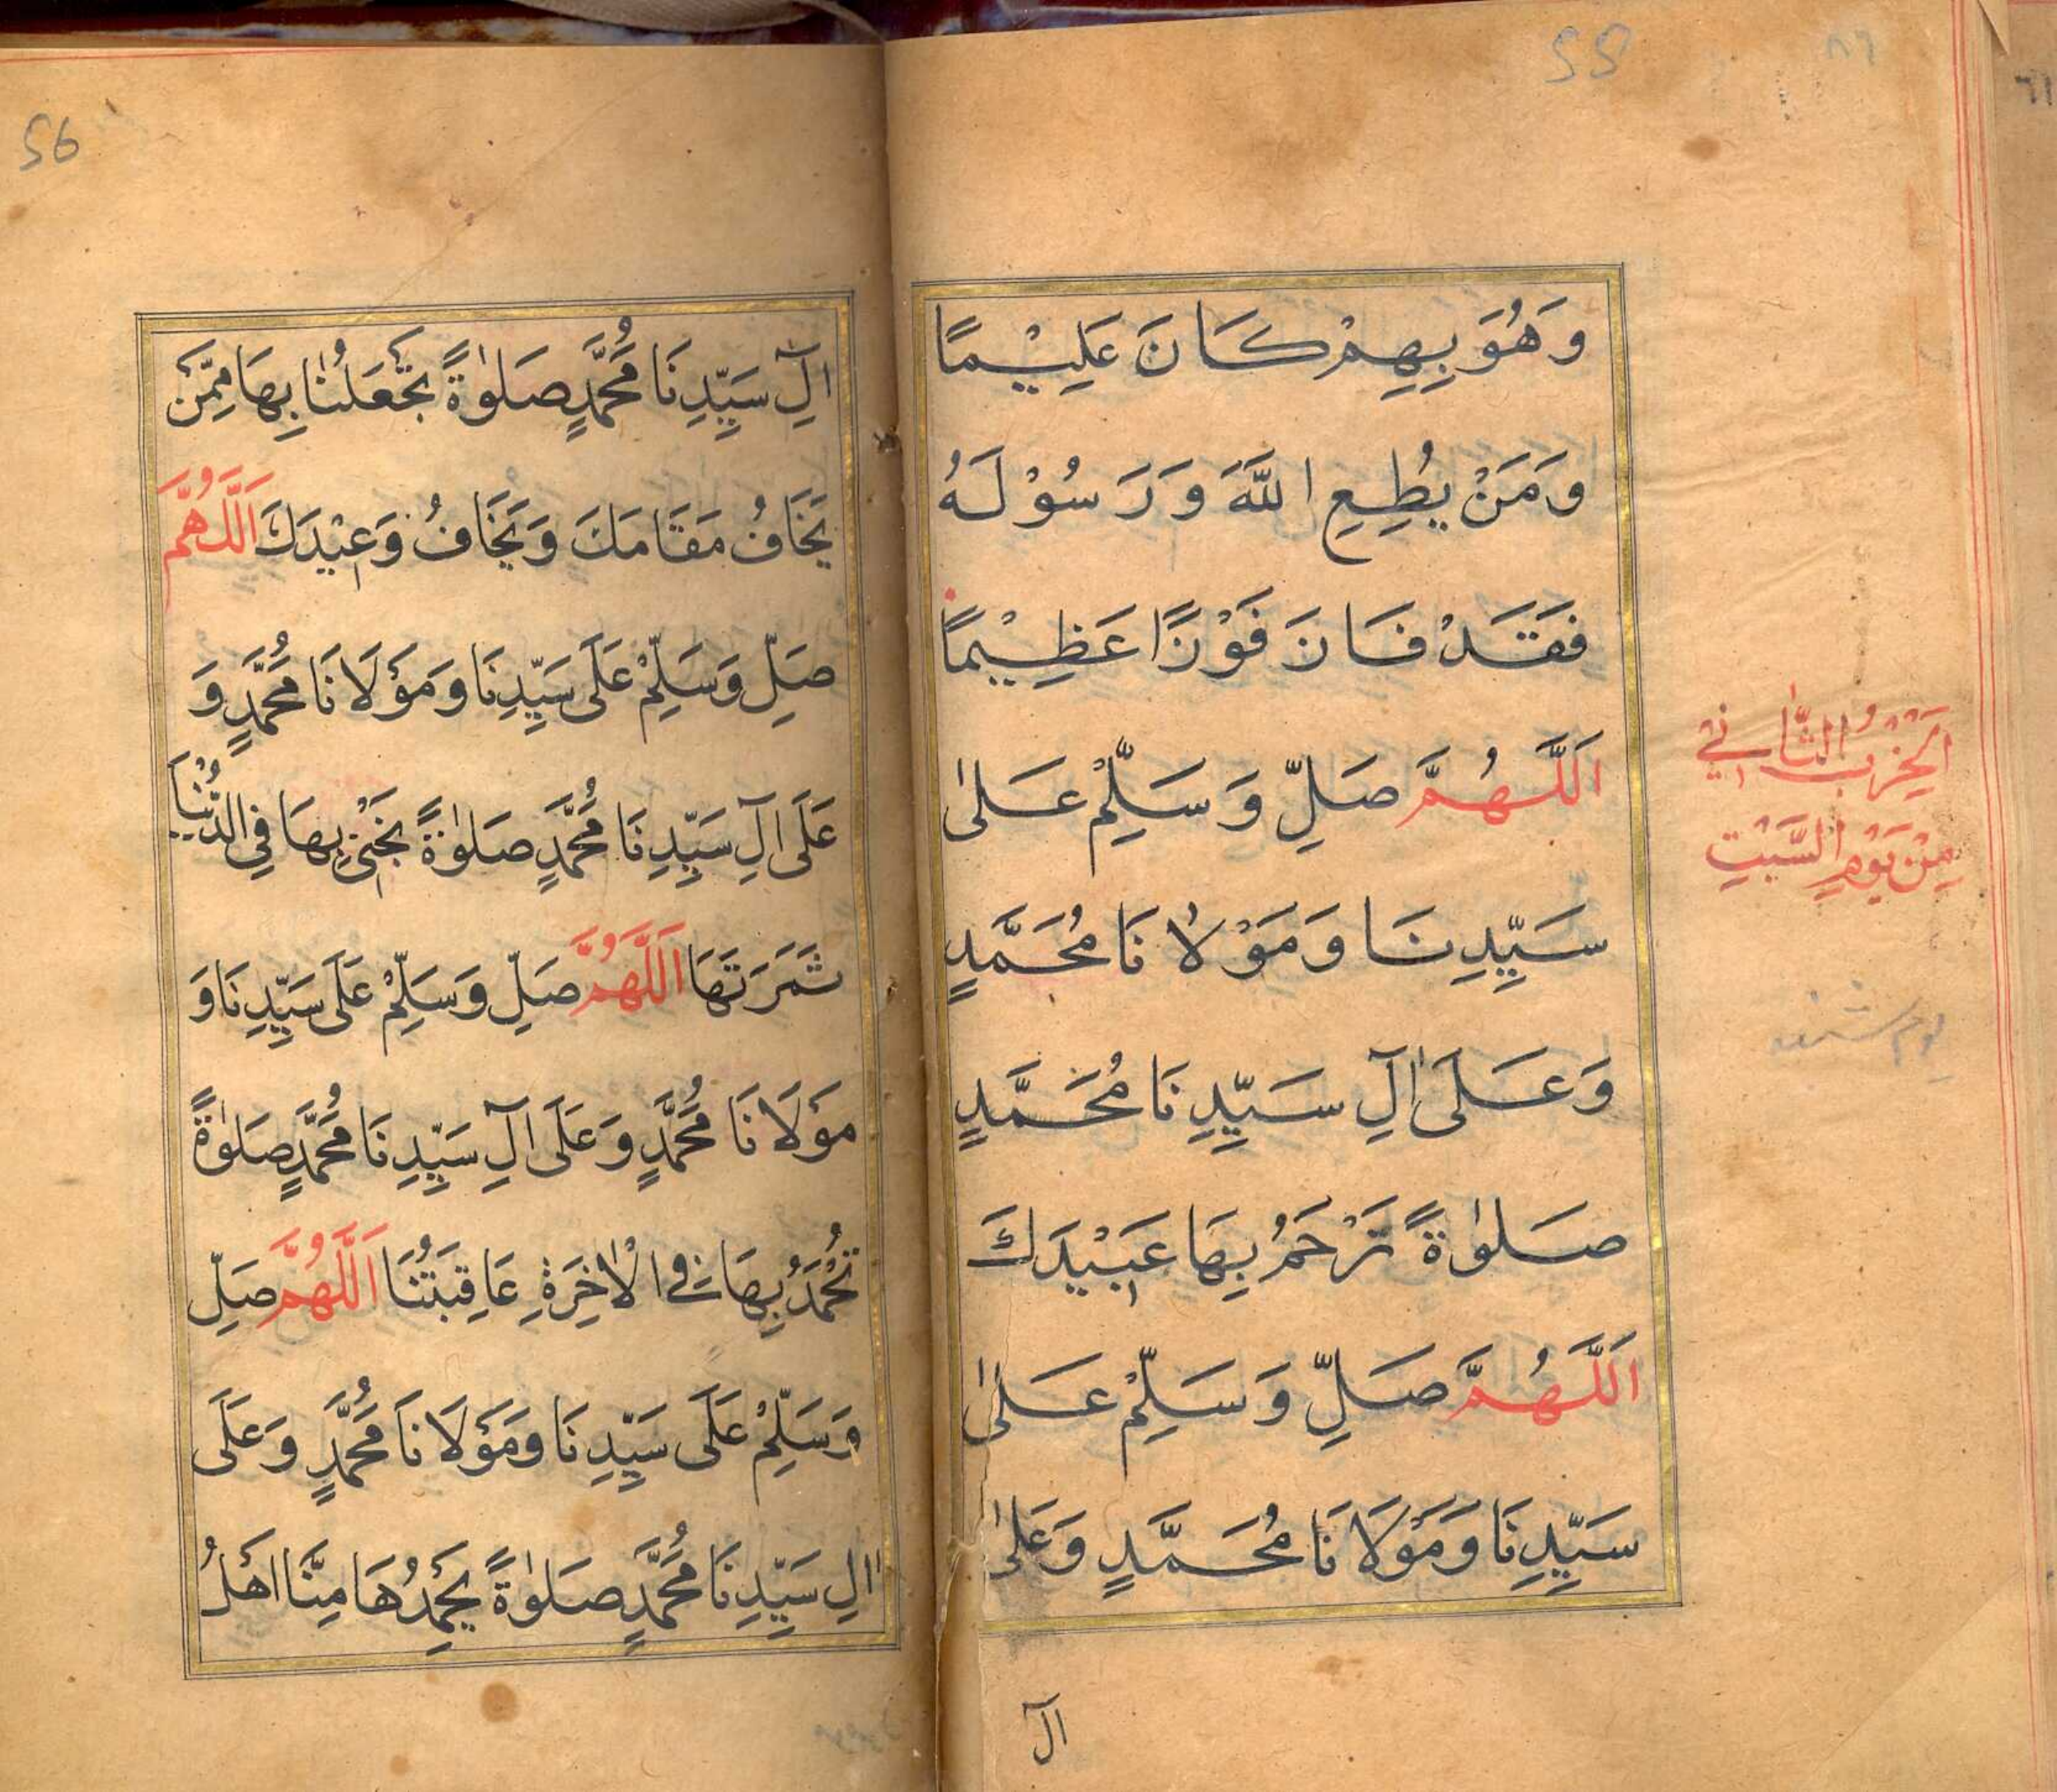 55
وَهُوَ بِهِمْ كَانَ عَلِيْمًا
وَمَنْ يُطِعِ اللّٰهَ وَرَسُوْلَهُ
فَقَدْ فَانَ فَوْزًا عَظِيْمًا
اَللّٰهُمَّ صَلِّ وَسَلِّمْ عَلىٰ
سَيِّدِنَا وَمَوْلَانَا مُحَمَّدٍ
وَعَلَى اٰلِ سَيِّدِنَا مُحَمَّدٍ
صَلوٰةً تَرْحَمُ بِهَا عَبِيْدَكَ
اَللّٰهُمَّ صَلِّ وَسَلِّمْ عَلىٰ
سَيِّدِنَا وَمَوْلَانَا مُحَمَّدٍ وَعَلىٰ
اٰل
اَلْحِزْبُ الثَّانِي
مِنْ يَوْمِ السَّبْتِ
يوم شنبه
56
اٰلِ سَيِّدِنَا مُحَمَّدٍ صَلوٰةً تَجْعَلُنَا بِهَا مِمَّنْ
يَخَافُ مَقَامَكَ وَيَخَافُ وَعِيْدَكَ اَللّٰهُمَّ
صَلِّ وَسَلِّمْ عَلَى سَيِّدِنَا وَمَوْلَانَا مُحَمَّدٍ وَ
عَلَى اٰلِ سَيِّدِنَا مُحَمَّدٍ صَلوٰةً نَجْنِيْ بِهَا فِي الدُّنْيَا
ثَمَرَتَهَا اَللّٰهُمَّ صَلِّ وَسَلِّمْ عَلَى سَيِّدِنَا وَ
مَوْلَانَا مُحَمَّدٍ وَعَلَى اٰلِ سَيِّدِنَا مُحَمَّدٍ صَلوٰةً
تُحْمَدُ بِهَا فِي الْاٰخِرَةِ عَاقِبَتُنَا اَللّٰهُمَّ صَلِّ
وَسَلِّمْ عَلَى سَيِّدِنَا وَمَوْلَانَا مُحَمَّدٍ وَعَلَى
اٰلِ سَيِّدِنَا مُحَمَّدٍ صَلوٰةً يَحْمِدُهَا مِنَّا اَهْلُ